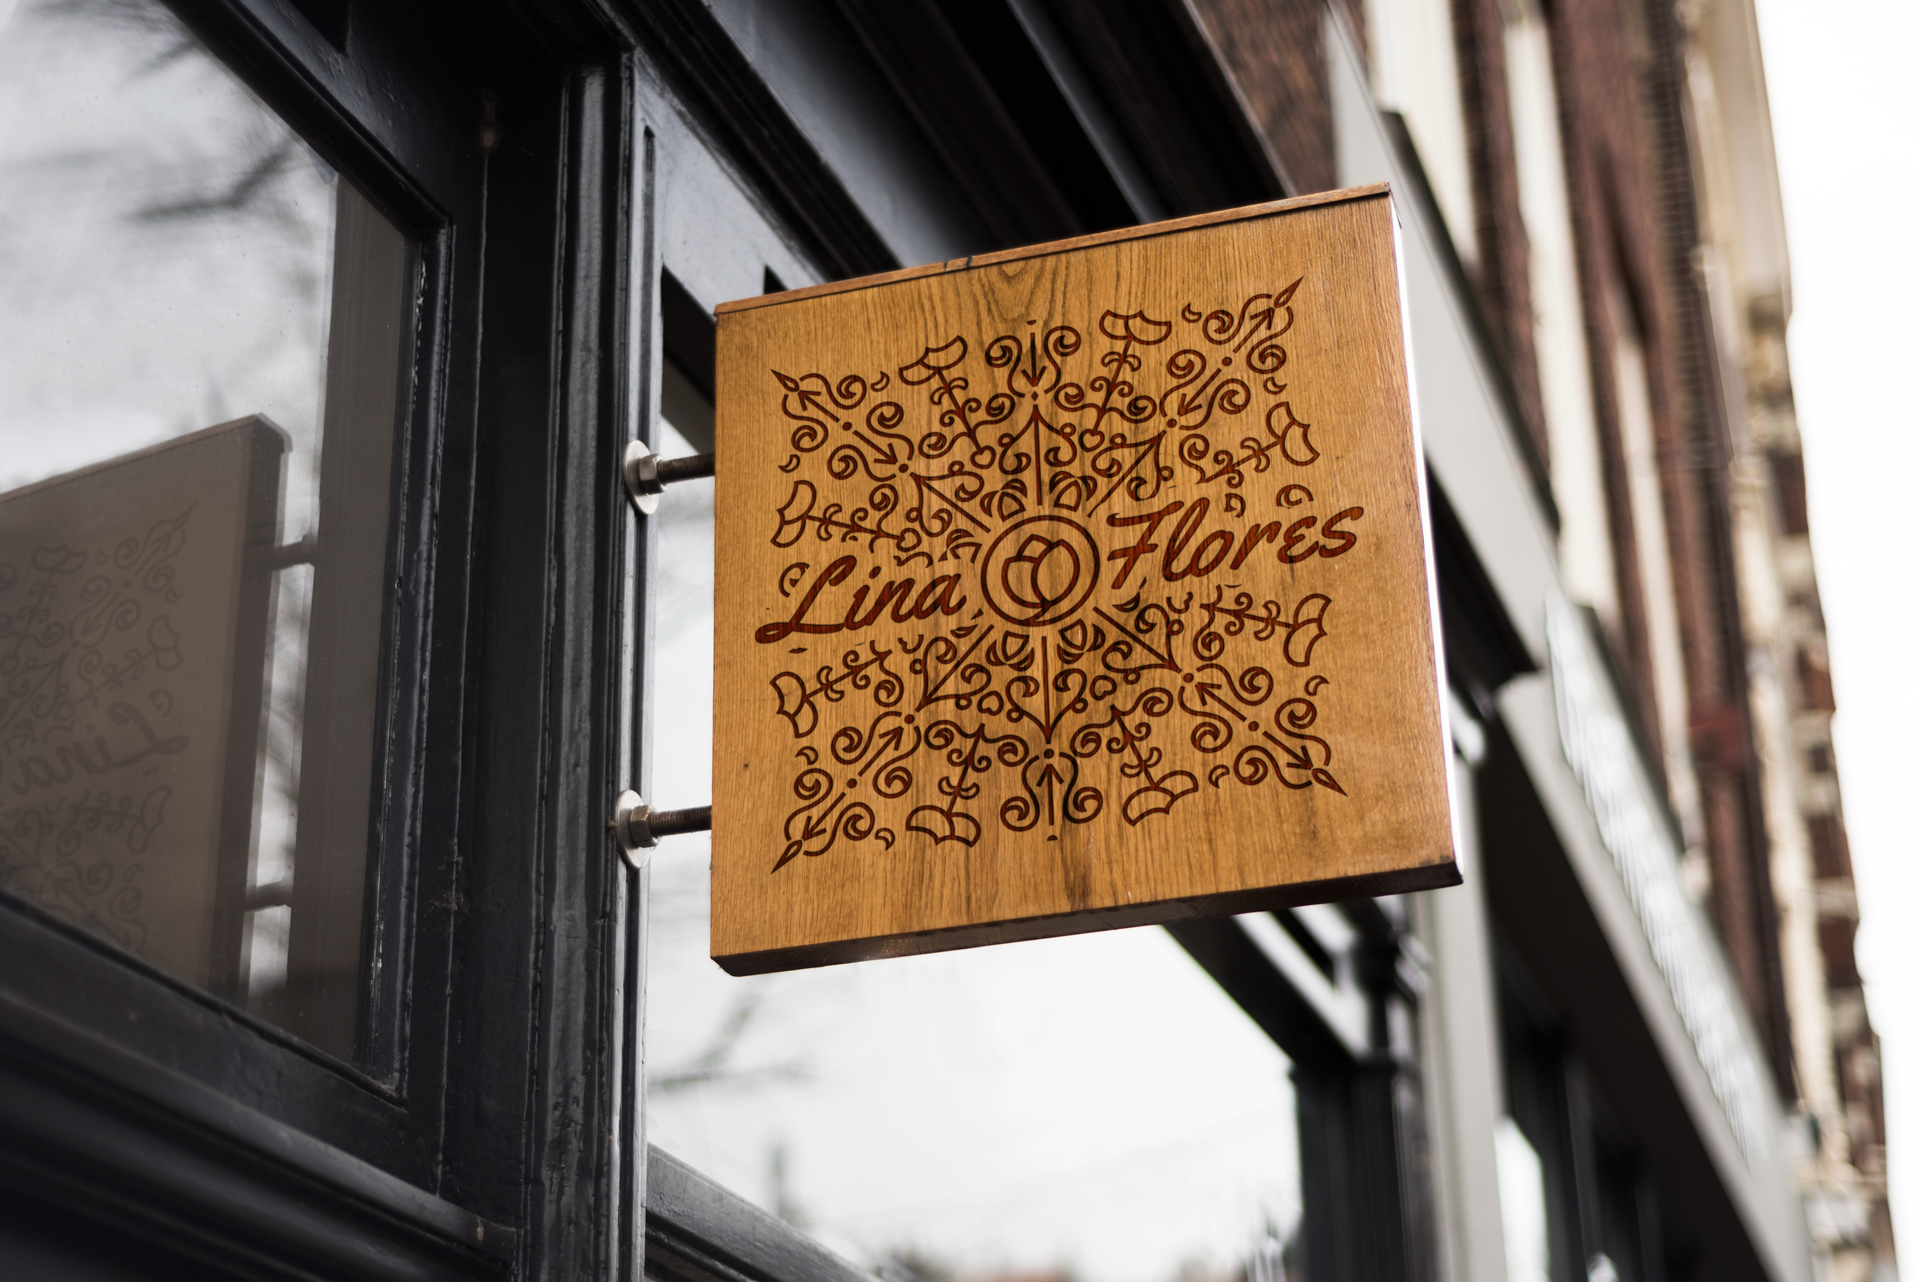 Lina Flores